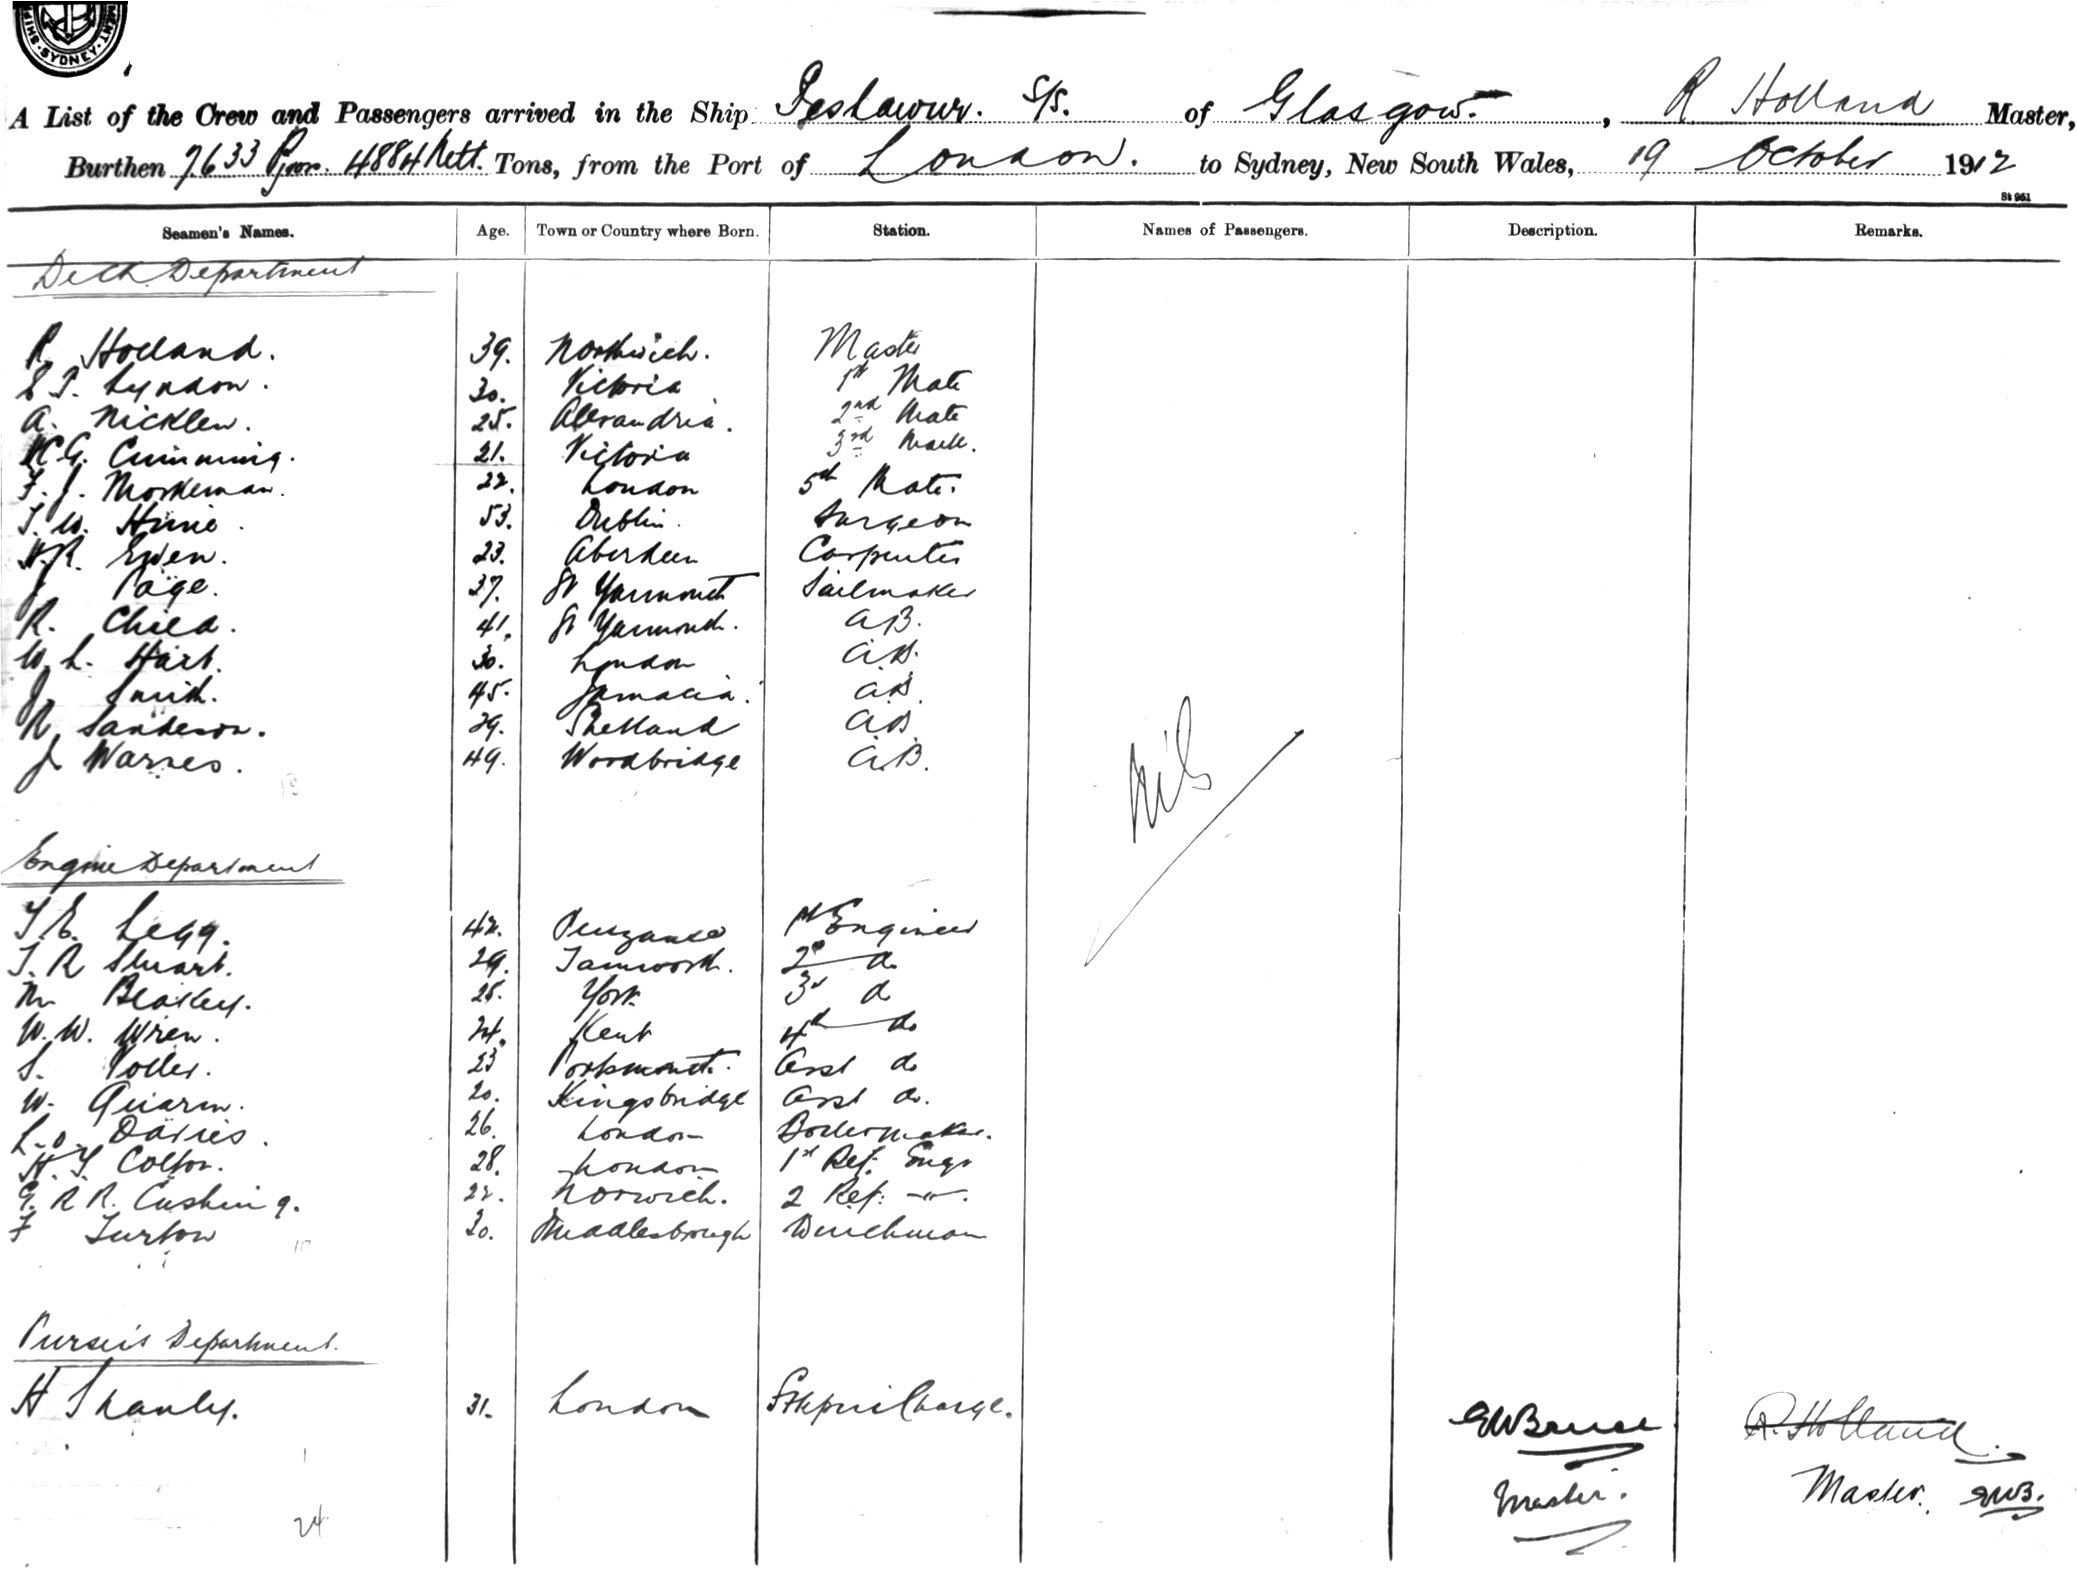 SYDNEY
A List of the Crew and Passengers arrived in the Ship Peshawur. S/S. of Glasgow. , R Holland Master,
Burthen 7633 4884 Nett. Tons, from the Port of London. to Sydney, New South Wales, 19 October 1912
St 961
Seamen's Names. Age. Town or Country where Born. Station. Names of Passengers. Description. Remarks.
Deck Department
R Holland. 39. Northwich. Master
Lyndon. 30. Victoria 1st Mate
A. Nicklen. 25. Alexandria. 2nd Mate
Cumming. 21. Victoria 3rd Mate.
F. J. 22. London 5th Mate.
53. Dublin. Surgeon
H.R. Ewen. 23. Aberdeen Carpenter
J Page. 37. Gt Yarmouth Sailmaker
R. Child. 41. Gt Yarmouth. A.B.
W. L. Hart. 30. London A.B.
J Smith. 45. Jamacia. A.B.
R Sanderson. 29. Shetland A.B.
J Warnes. 49. Woodbridge A.B.
13
Nil
Engine Department
T.E. Legg. 42. Penzance 1st Engineer
T. R Stuart. 29. Tamworth. 2d do
M Blakey. 25. York 3rd do
W. W. Wren. 24. Kent 4th do
S. Voller. 23 Portsmouth. Asst do
W. Quarm. 20. Kingsbridge Asst do.
L. O. Davies. 26. London Boilermaker.
H. Colton. 28. London 1st Ref. Engr
G. R R. Cushing. 22. Norwich. 2 Ref. -"-.
F Turton 30. Middlesbrough Winchman
10
Purser's Department.
H Shanly. 31. London Charge.
GWBruce R. Holland.
Master. Master. GWB.
1
24